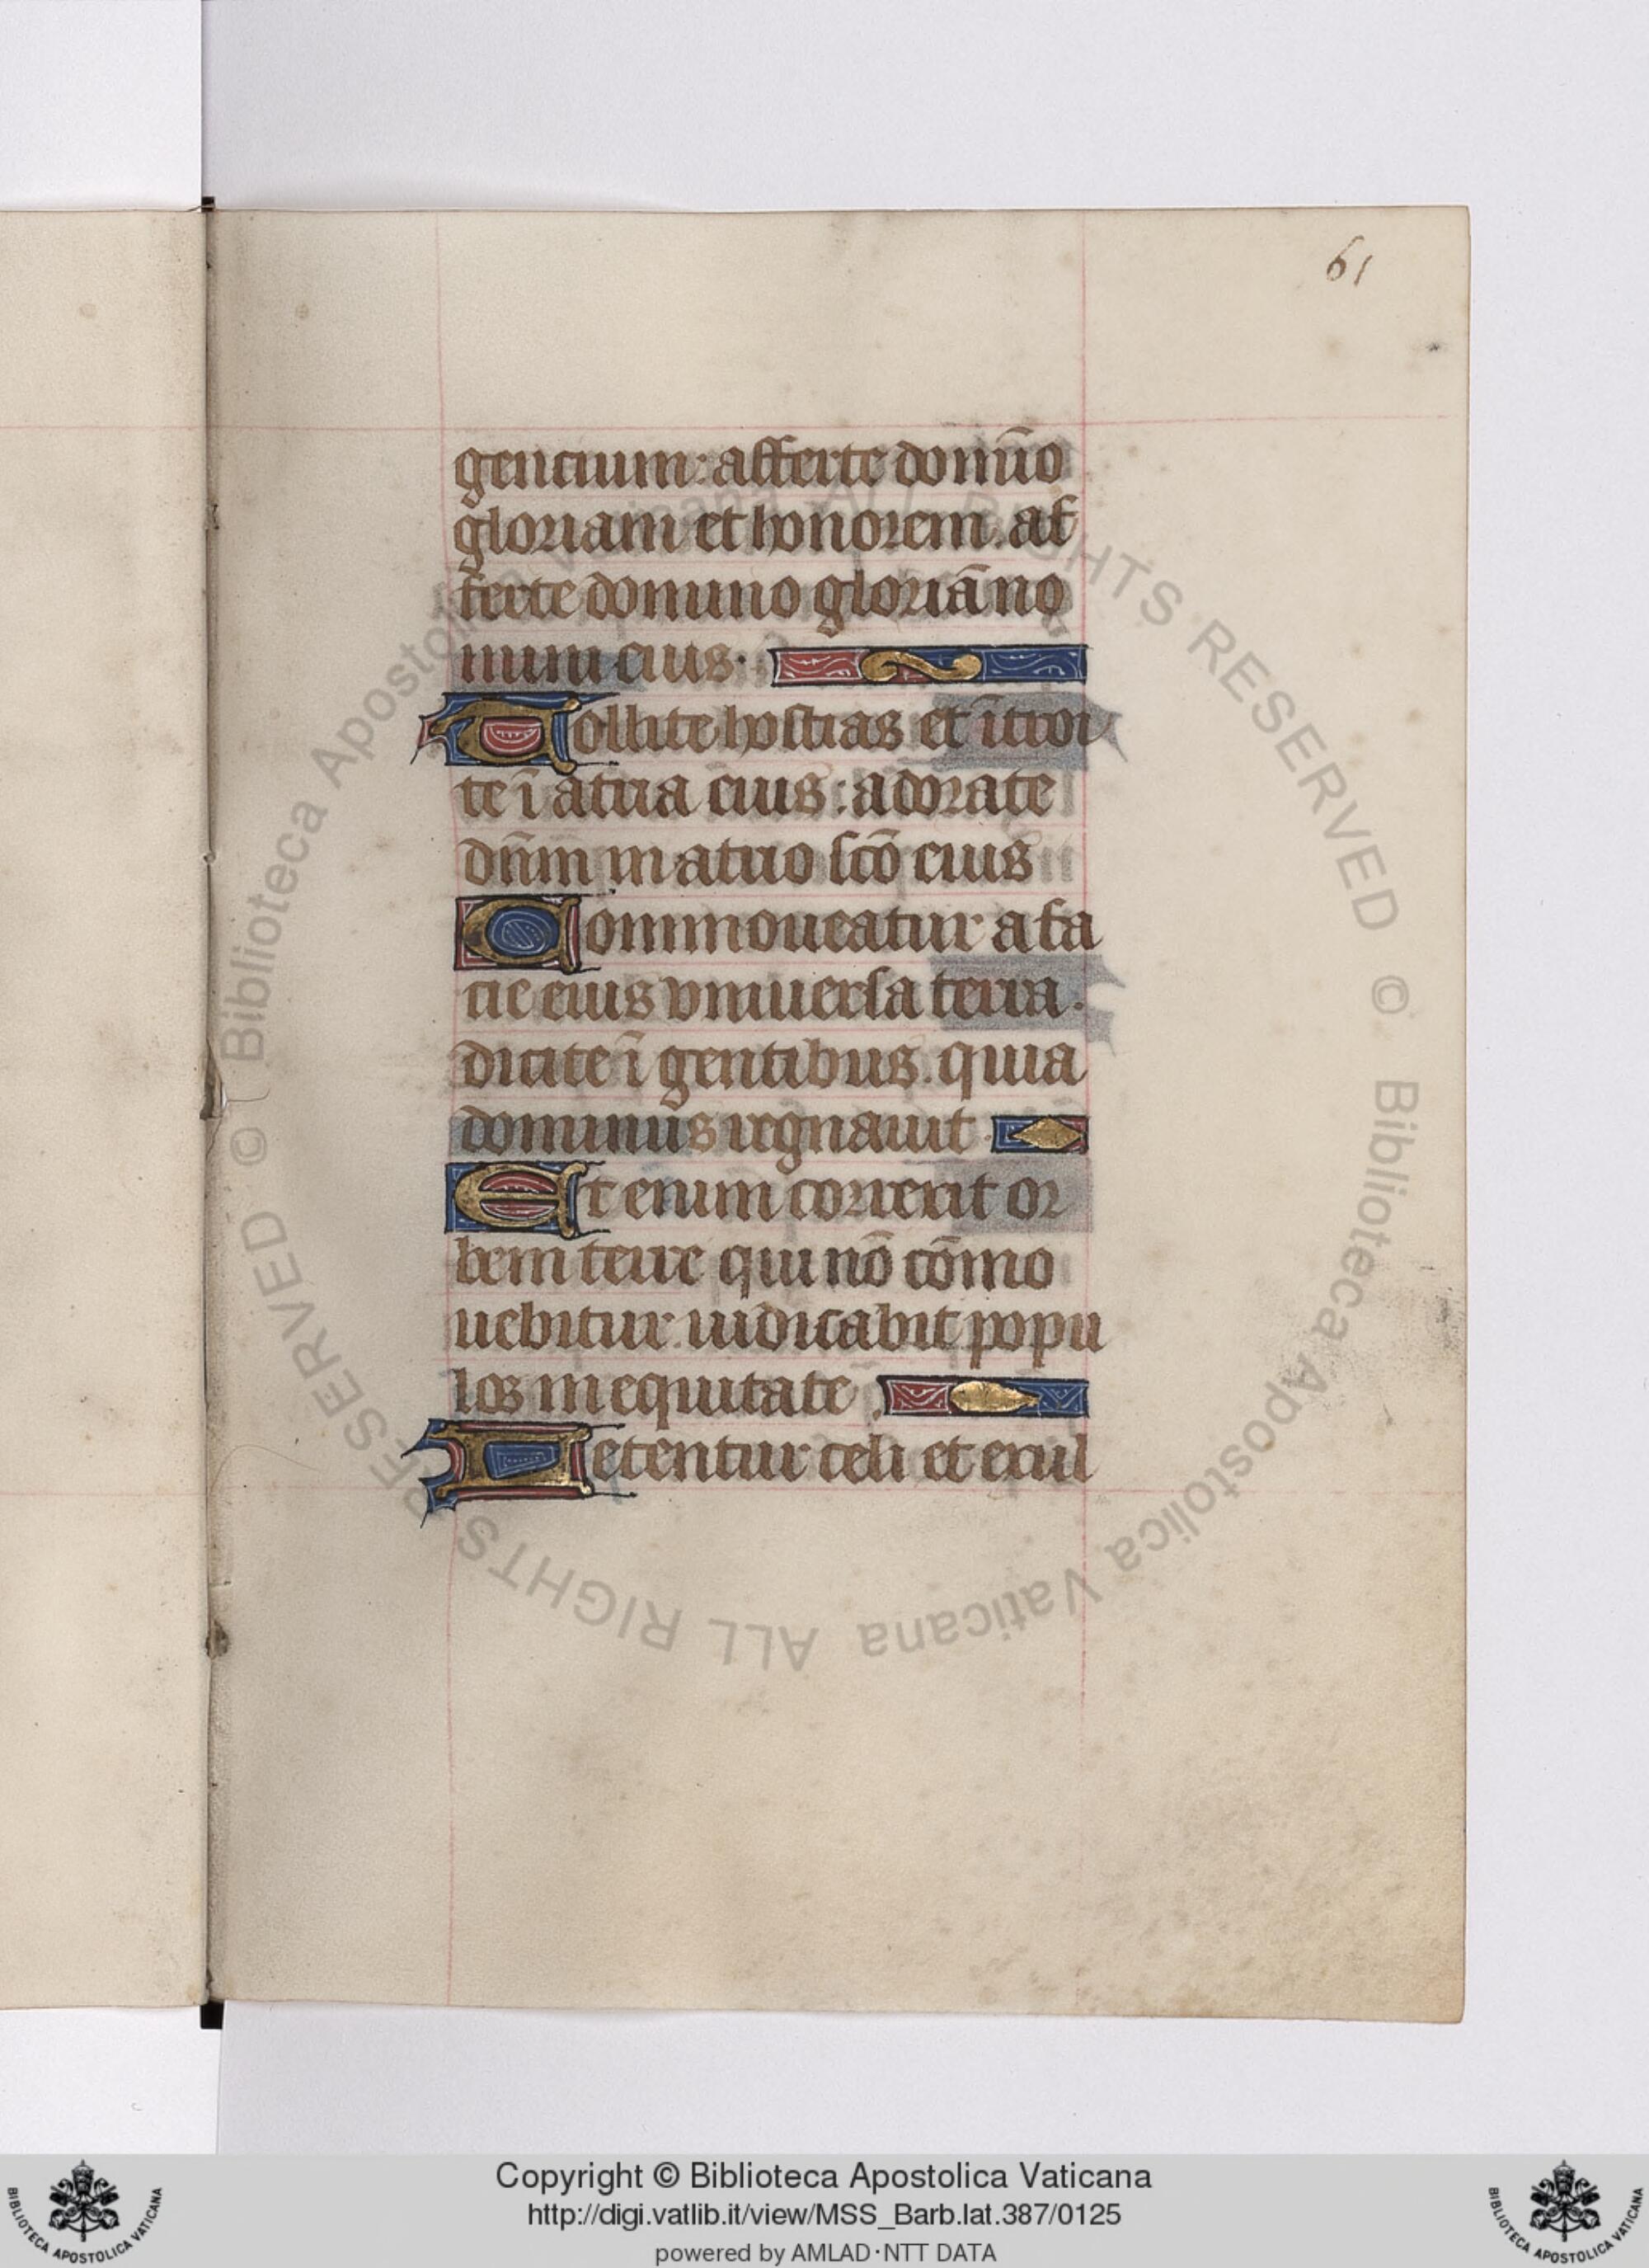 61
gencium: afferte domīo
gloriam et honorem. af
ferte domino gloriā no
mini eius.
Tollite hostias et ītroi
te ī atria eius: adorate
dn̄m in atrio scō eius
Commoueatur a fa
cie eius vniuersa terra.
dicite ī gentibus. quia
dominus regnauit.
Et enim correxit or
bem terre qui nō cōmo
uebitur. iudicabit popu
los in equitate.
Letentur celi et exul
© Biblioteca Apostolica Vaticana ALL RIGHTS RESERVED © Biblioteca Apostolica Vaticana ALL RIGHTS RESERVED
Copyright © Biblioteca Apostolica Vaticana
http://digi.vatlib.it/view/MSS_Barb.lat.387/0125
powered by AMLAD·NTT DATA
BIBLIOTECA APOSTOLICA VATICANA
BIBLIOTECA APOSTOLICA VATICANA